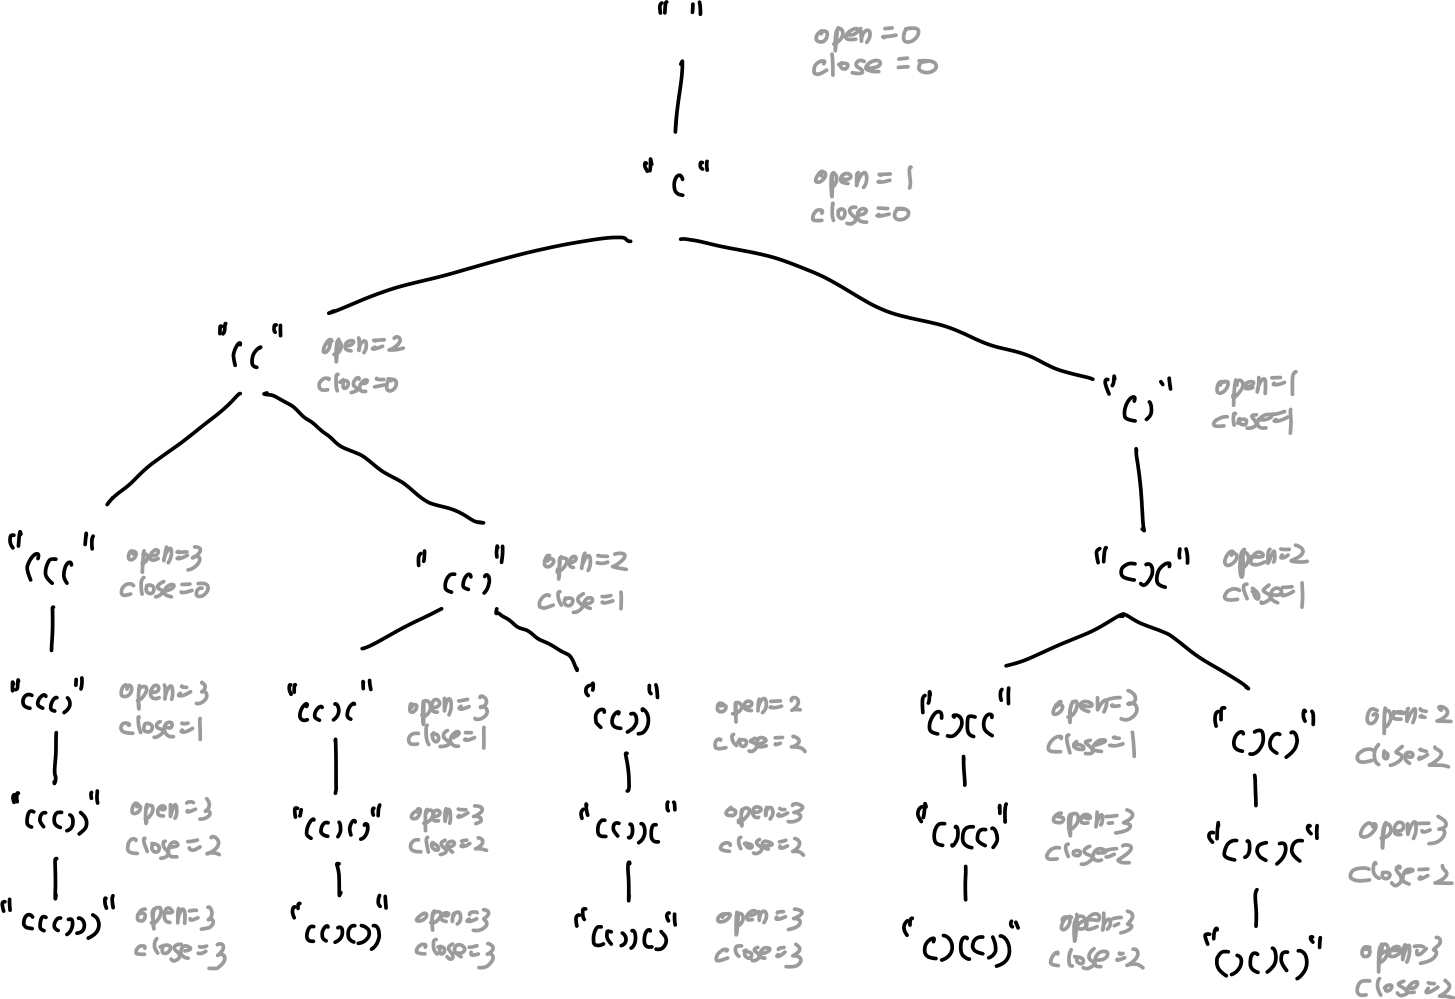 " "
open=0
close=0
"("
open=1
close=0
"(("
open=2
close=0
"()"
open=1
close=1
"((("
open=3
close=0
"(()"
open=2
close=1
"()("
open=2
close=1
"((()"
open=3
close=1
"(()("
open=3
close=1
"(())"
open=2
close=2
"()(("
open=3
close=1
"()()"
open=2
close=2
"((())"
open=3
close=2
"(()()"
open=3
close=2
"(())("
open=3
close=2
"()(()"
open=3
close=2
"()()("
open=3
close=2
"((()))"
open=3
close=3
"(()())"
open=3
close=3
"(())()"
open=3
close=3
"()(())"
open=3
close=2
"()()()"
open=3
close=2